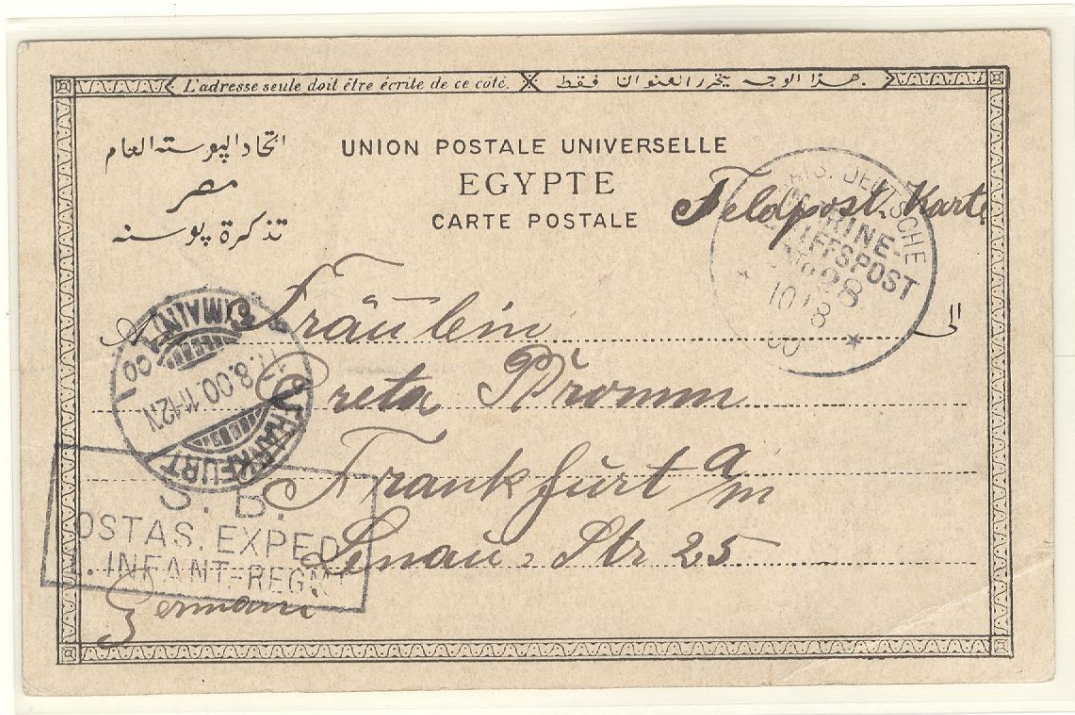 L'adresse seule doit être écrite de ce côté. هذا الوجه يحرر العنوان فقط.
اتحاد البوسته العام
مصر
تذكرة بوسته
UNION POSTALE UNIVERSELLE
EGYPTE
CARTE POSTALE
Feldpost-Karte
DEUTSCHE
MARINE-
SCHIFFSPOST
No 28
10/8
00
الى
Fräulein
Greta Fromm
Frankfurt a/m
Lenau-Str 25
Germani
FRANKFURT (MAIN)
8.00. 11-12N
S. B.
OSTAS. EXPED.
INFANT-REGMT